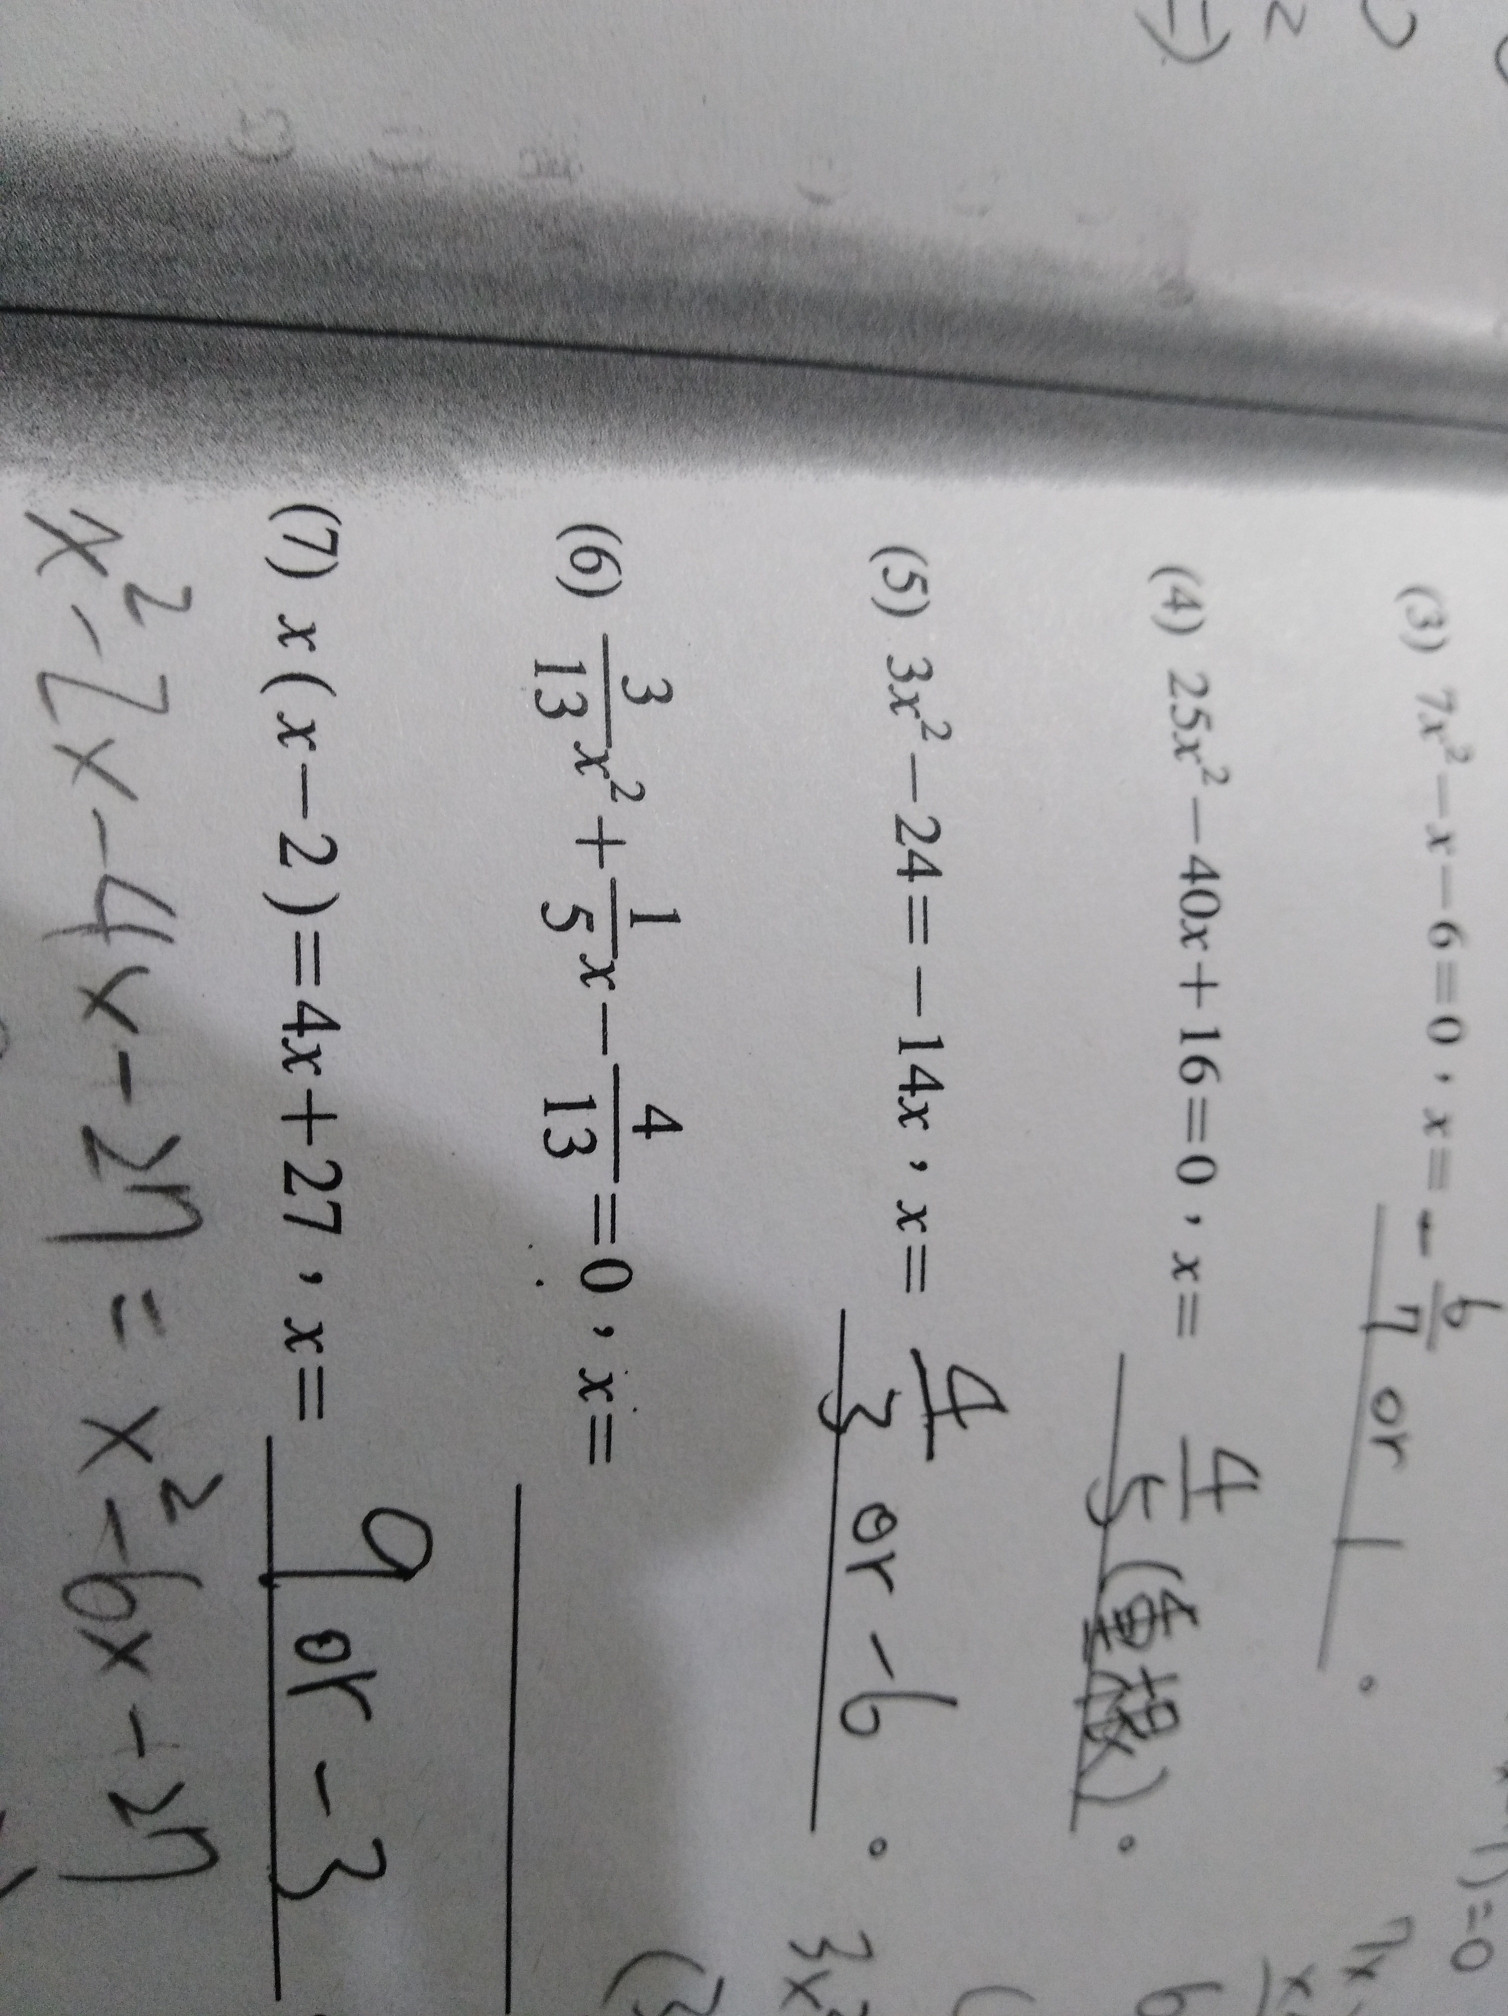 (3) 7x²－x－6=0，x= -6/7 or 1 。
(4) 25x²－40x＋16=0，x= 4/5 (重根) 。
(5) 3x²－24=－14x，x= 4/3 or -6 。
(6) 3/13 x²＋1/5 x－4/13=0，x=
(7) x(x－2)=4x＋27，x= 9 or -3
x²-2x-4x-27=x²-6x-27